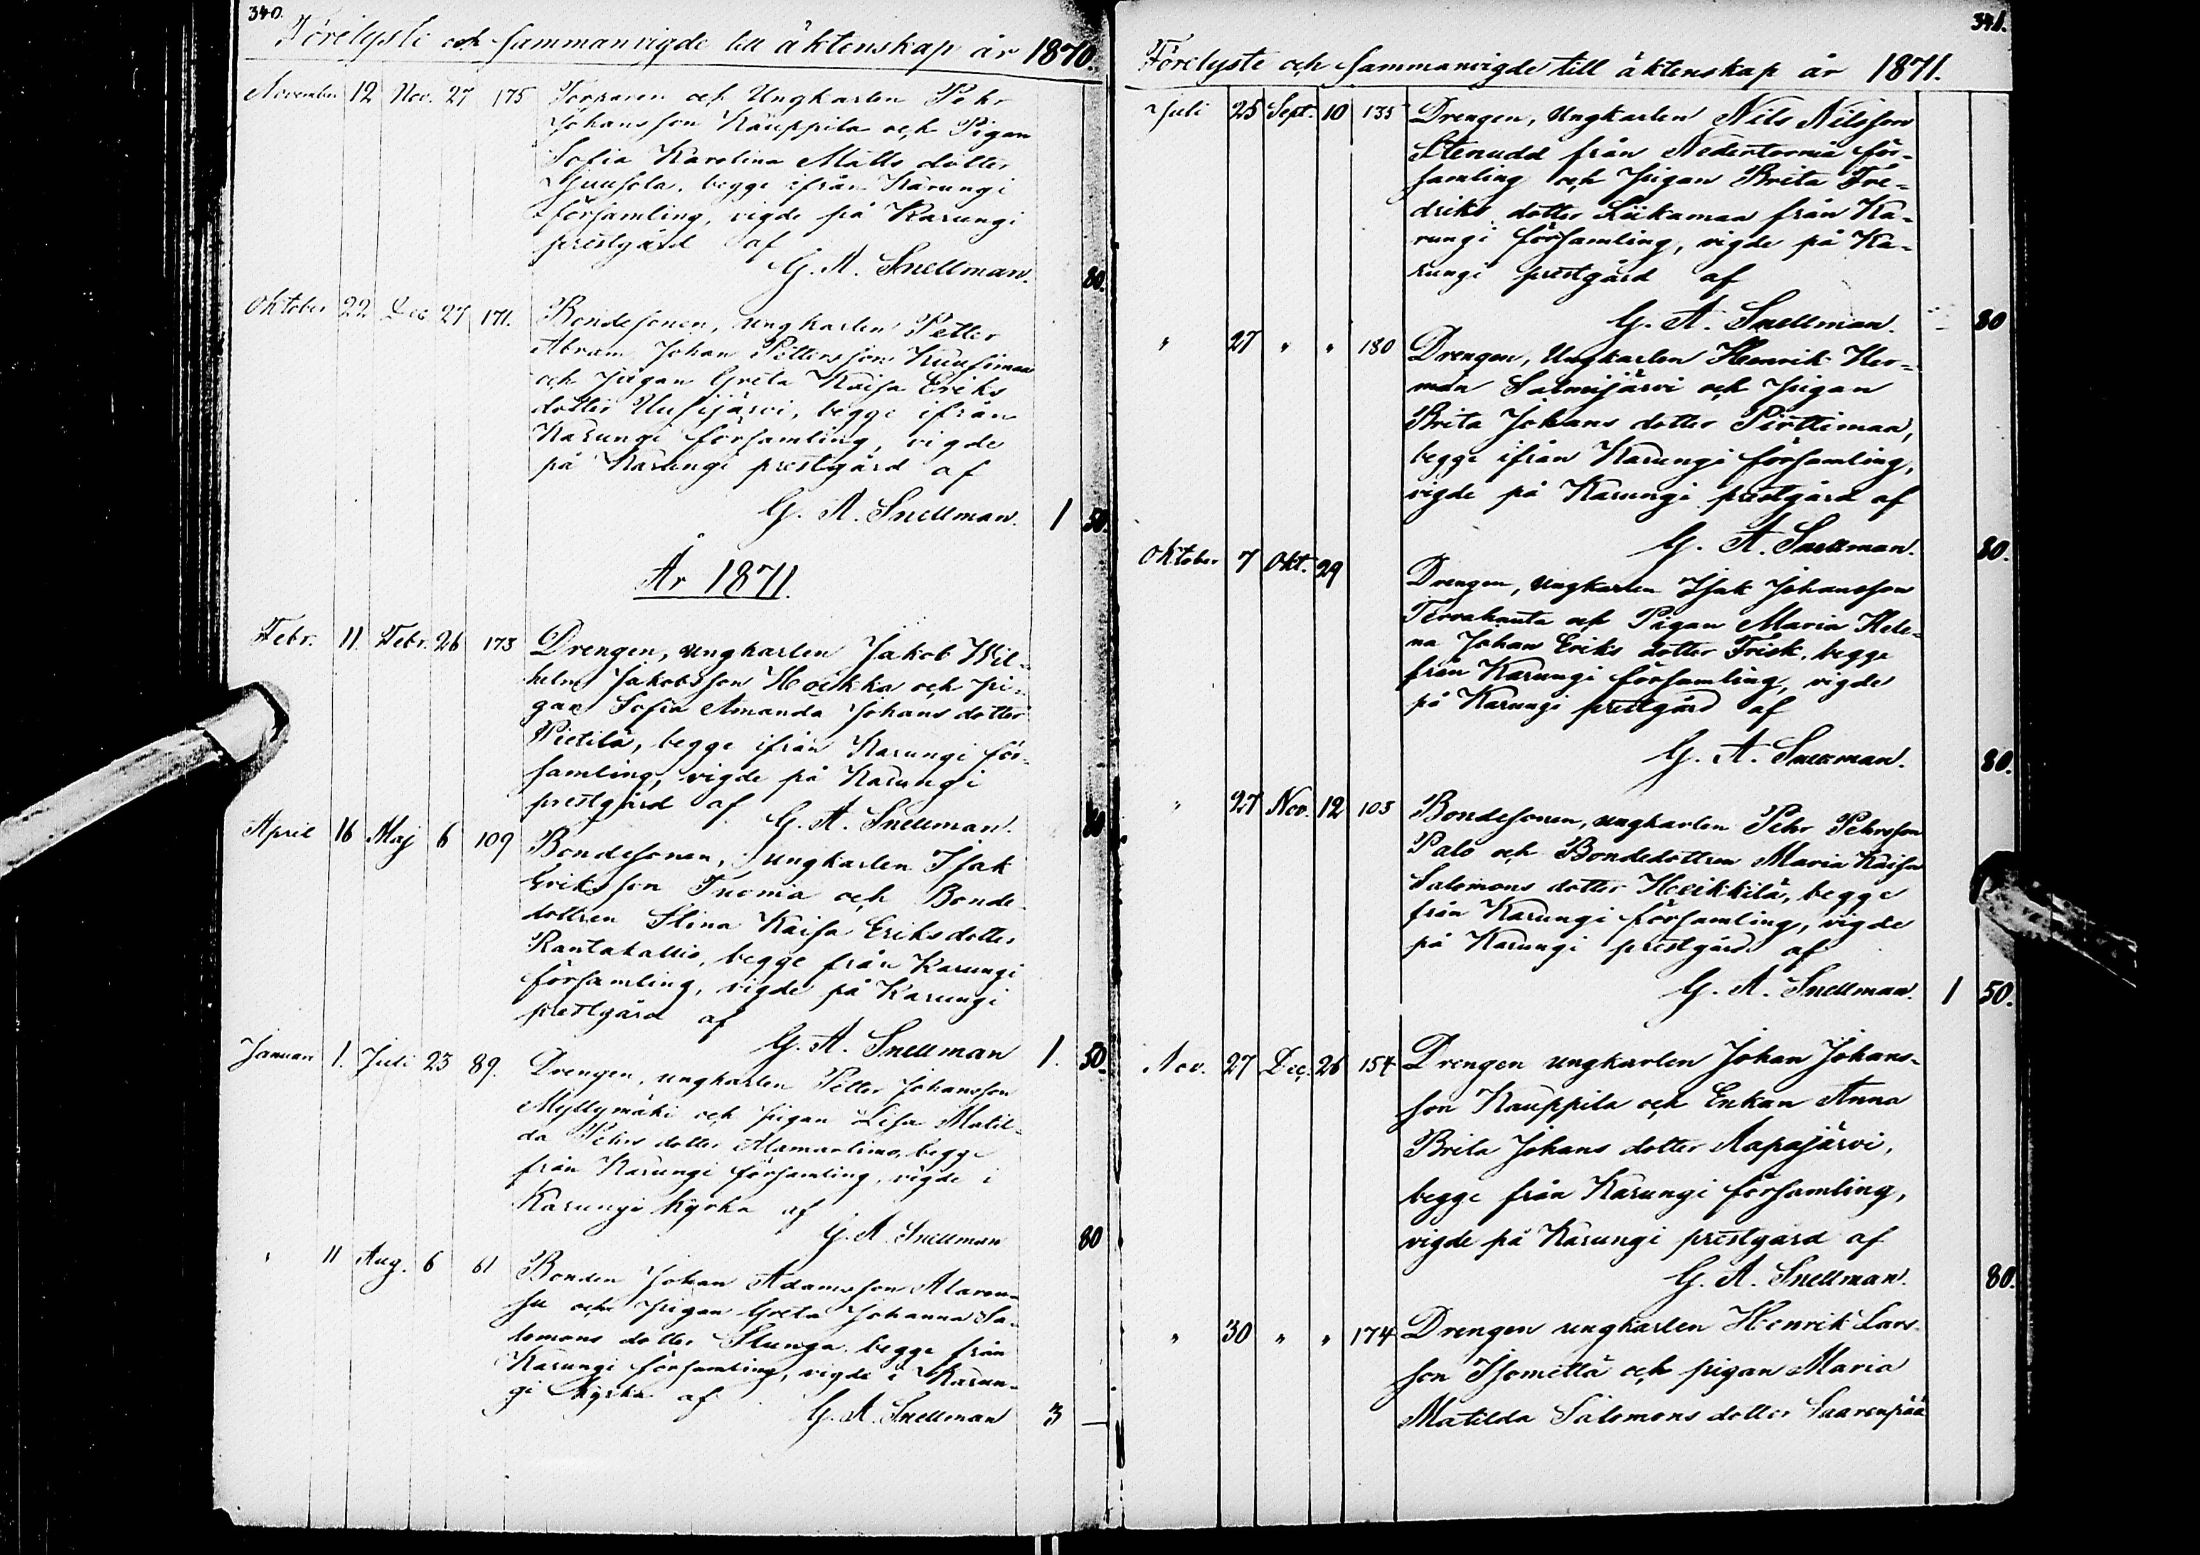 340.
Förelyste och sammanvigde till äktenskap år 1870.
November 12 Nov. 27 175 Torparen och Ungkarlen Pehr
Johansson Kauppila och Pigan
Sofia Karolina Matts dotter
begge ifrån Karungi
församling, vigde på Karungi
prestgård af
G. A. Snellman. 80.
Oktober 22 Dec. 27 171. Bondesonen, ungkarlen Petter
Abram Johan Pettersson Kuusimaa
och pigan Greta Kaisa Eriks
dotter Uusijärvi, begge ifrån
Karungi församling, vigde
på Karungi prestgård af
G. A. Snellman. 1 50.
År 1871.
Febr. 11. Febr. 26 173 Drengen, ungkarlen Jakob Wil-
helm Jakobsson Hoikka och pi-
gan Sofia Amanda Johans dotter
Pietilä, begge ifrån Karungi för-
samling, vigde på Karungi
prestgård af G. A. Snellman. 80
April 16 Maj 6 109 Bondesonen, ungkarlen Isak
Eriksson Tuomia och Bonde
dottren Stina Kaisa Eriksdotter
Rantakallio, begge från Karungi
församling, vigde på Karungi
prestgård af
G. A. Snellman 1. 50.
Januari 1. Juli 23 89. Drengen, ungkarlen Petter Johansson
Myllymäki och pigan Lisa Matil-
da Pehrs dotter Alamartimo, begge
från Karungi församling, vigde i
Karungi kyrka af
G. A. Snellman 80
" 11 Aug. 6 61 Bonden Johan Adamsson
och pigan Greta Johanna Sa-
lomons dotter Stunga, begge från
Karungi församling, vigde i Karun-
gi kyrka af G. A. Snellman 3 —
341.
Förelyste och sammanvigde till äktenskap år 1871.
Juli 25 Sept. 10 135 Drengen, Ungkarlen Nils Nilsson
Stenudd från Nedertorneå för-
samling och pigan Brita Fre-
driks dotter Liikamaa från Ka-
rungi församling, vigde på Ka-
rungi prestgård af
G. A. Snellman. 80
" 27 " " 180 Drengen, Ungkarlen Henrik Her-
man Salmijärvi och pigan
Brita Johans dotter Pirttimaa,
begge ifrån Karungi församling,
vigde på Karungi prestgård af
G. A. Snellman. 80.
Oktober 7 Okt. 29 Drengen, ungkarlen Isak Johansson
Tervahauta och Pigan Maria Hele-
na Johan Eriks dotter Frisk, begge
från Karungi församling, vigde
på Karungi prestgård af
G. A. Snellman. 80.
" 27 Nov. 12 105 Bondesonen, ungkarlen Pehr Pehrsson
Palo och Bondedottren Maria Kaisa
Salomons dotter Heikkilä, begge
från Karungi församling, vigde
på Karungi prestgård af
G. A. Snellman. 1 50.
Nov. 27 Dec. 26 154 Drengen ungkarlen Johan Johans-
son Kauppila och Enkan Anna
Brita Johans dotter Aapajärvi,
begge från Karungi församling,
vigde på Karungi prestgård af
G. A. Snellman. 80.
" 30 " " 174 Drengen ungkarlen Henrik Lars-
son Isometsä och pigan Maria
Matilda Salomons dotter Saarenpää